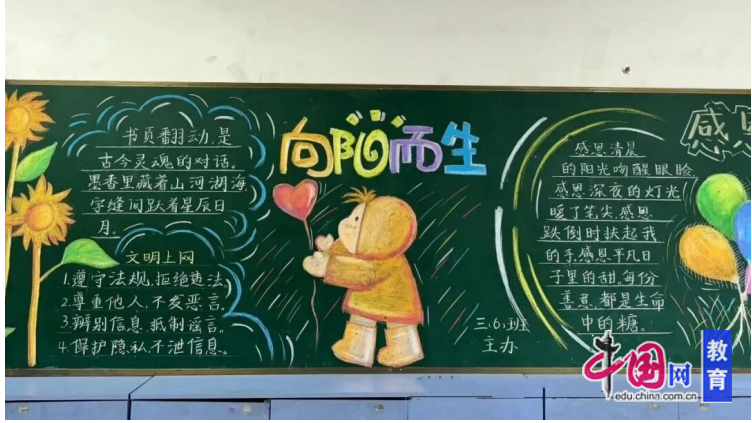 书页翻动,是
古今灵魂的对话,
墨香里藏着山河湖海,
字缝间跃着星辰日
月。
文明上网
1.遵守法规,拒绝违法,
2.尊重他人,不发恶言,
3.辨别信息,抵制谣言,
4.保护隐私,不泄信息。
向阳而生
三.6.班
主办
感恩清晨
的阳光吻醒眼睑,
感恩深夜的灯光
暖了笔尖,感恩
跌倒时扶起我
的手,感恩平凡日
子里的甜,每份
善意,都是生命
中的糖。
感恩
中国网
edu.china.com.cn
教育